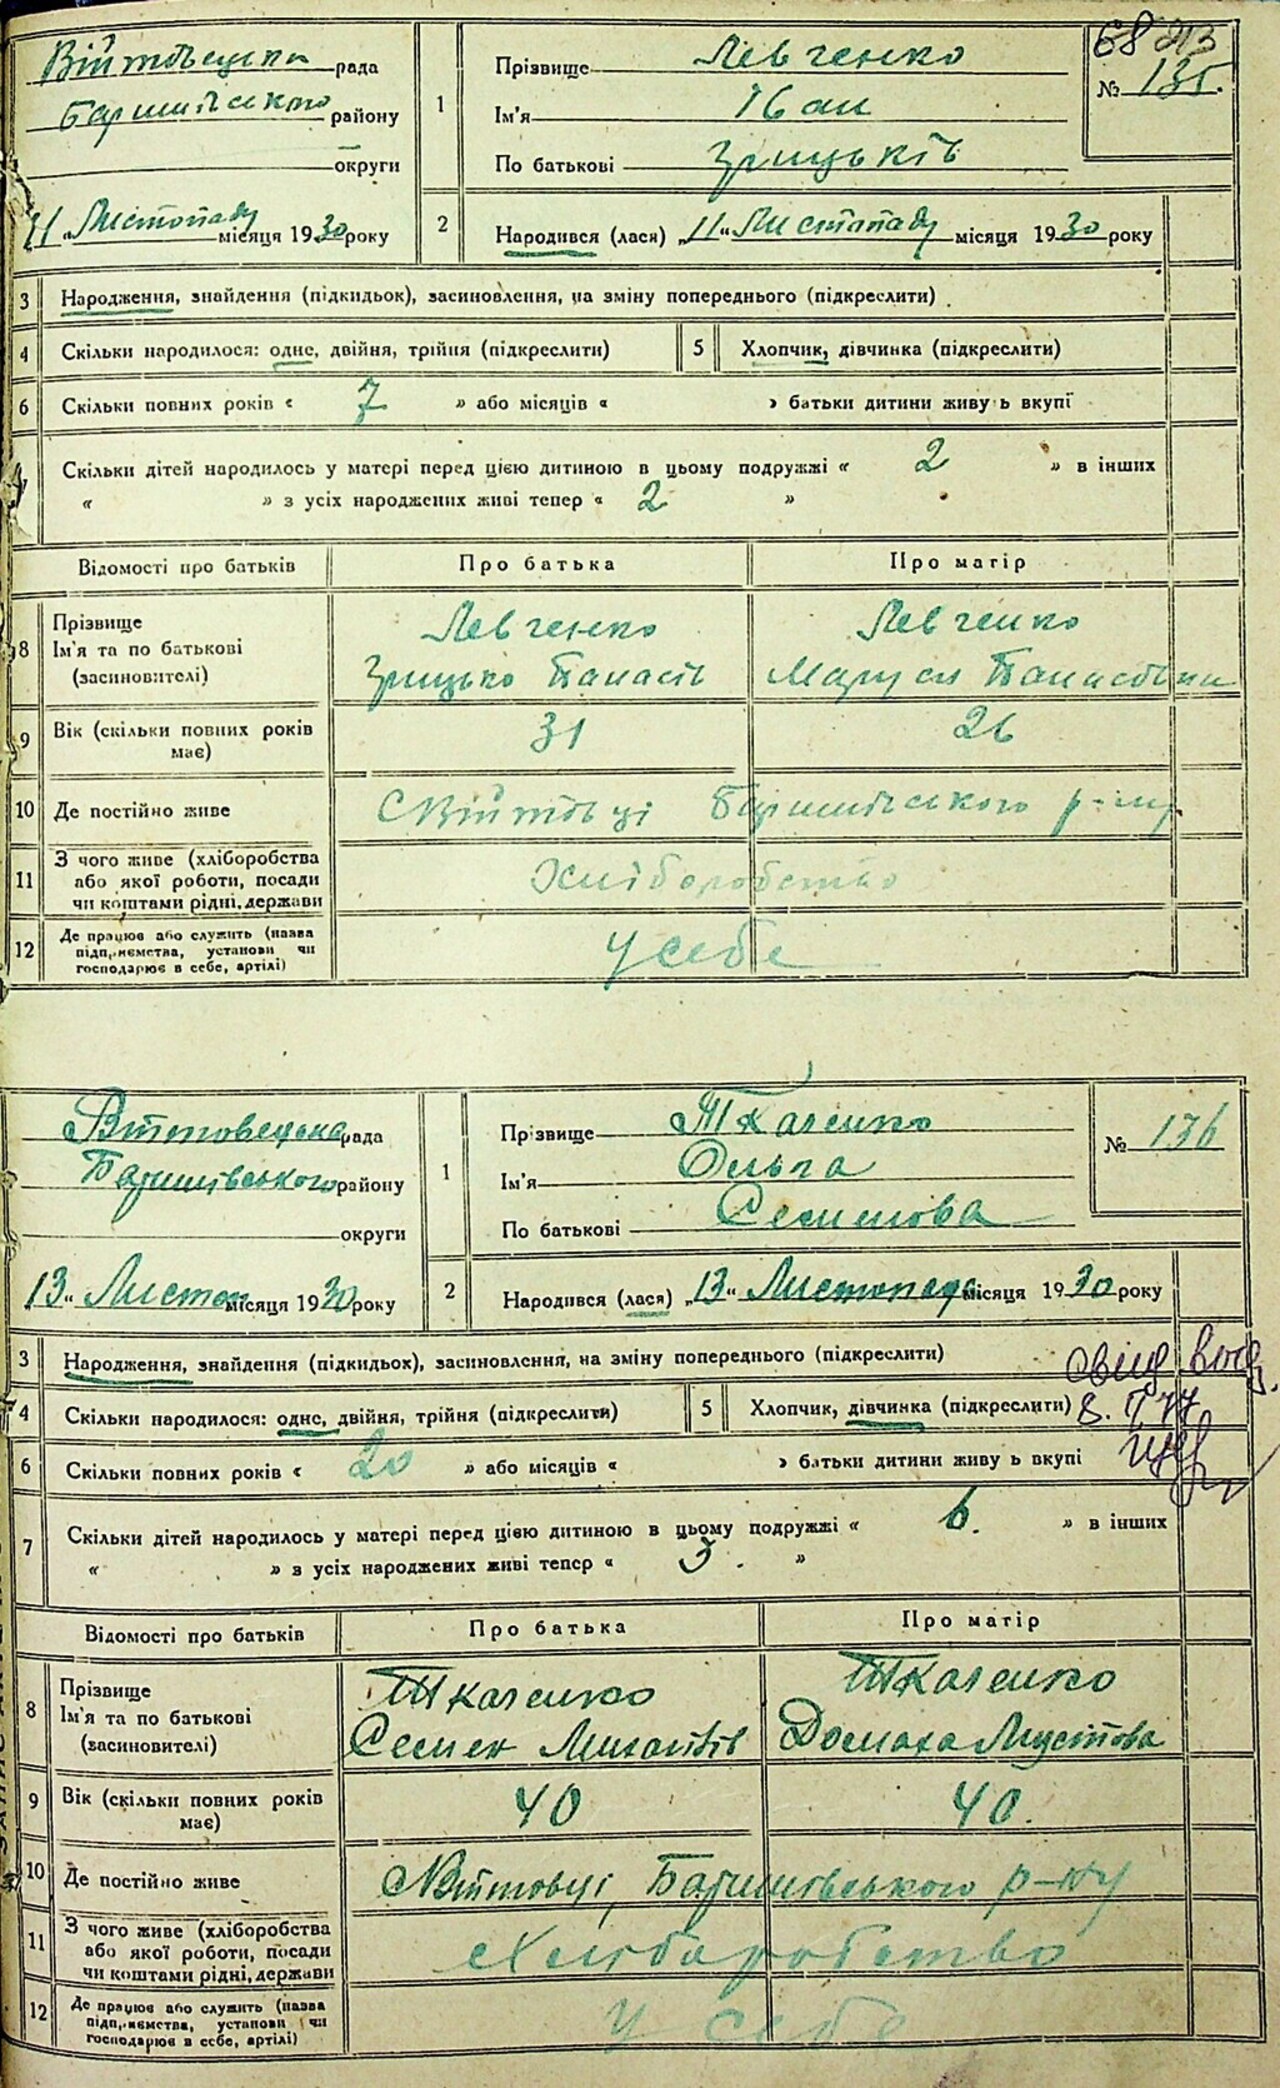 Війтовецька рада
Баришівського району
округи
11 „ Листопаду місяця 1930 року
1
Прізвище Левченко
Ім'я Іван
По батькові Грицьків
68 213
№ 135.
2
Народився (лася) „11“ Листопаду місяця 1930 року
3 Народження, знайдення (підкидьок), засиновлення, на зміну попереднього (підкреслити)
4 Скільки народилося: одне, двійня, трійня (підкреслити) 5 Хлопчик, дівчинка (підкреслити)
6 Скільки повних років « 7 » або місяців « » батьки дитини живу ь вкупі
Скільки дітей народилось у матері перед цією дитиною в цьому подружжі « 2 » в інших
« » з усіх народжених живі тепер « 2 »
Відомості про батьків Про батька Про матір
8 Прізвище Ім'я та по батькові (засиновителі) Левченко Грицько Панасів Левченко Маруся Панасівна
9 Вік (скільки повних років має) 31 26
10 Де постійно живе С Війтовці Баришівського р-ну
11 З чого живе (хліборобства або якої роботи, посади чи коштами рідні, держави Хліборобство
12 Де працює або служить (назва підприємства, установи чи господарює в себе, артілі) У себе
Втовецька рада
Баришівського району
округи
13 „ Листоп місяця 1930 року
1
Прізвище Ткаченко
Ім'я Ольга
По батькові Семенова
№ 136
2
Народився (лася) „13“ Листопада місяця 1930 року
3 Народження, знайдення (підкидьох), засиновлення, на зміну попереднього (підкреслити)
свид выд.
4 Скільки народилося: одне, двійня, трійня (підкреслити) 5 Хлопчик, дівчинка (підкреслити) 8. V 77
6 Скільки повних років « 20 » або місяців « » батьки дитини живу ь вкупі
7 Скільки дітей народилось у матері перед цією дитиною в цьому подружжі « 6. » в інших
« » з усіх народжених живі тепер « 5. »
Відомості про батьків Про батька Про матір
8 Прізвище Ім'я та по батькові (засиновителі) Ткаченко Семен Ткаченко Домаха
9 Вік (скільки повних років має) 40 40.
10 Де постійно живе Втовці, Баришівського р-ну
11 З чого живе (хліборобства або якої роботи, посади чи коштами рідні, держави Хліборобство
12 Де працює або служить (назва підприємства, установи чи господарює в себе, артілі) У себе